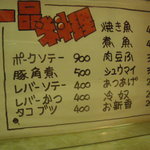 一品料理
ポークソテー 900
豚角煮 500
レバーソテー 400
レバーかつ 400
タコブツ 400
焼き魚
煮魚
肉豆ふ
シュウマイ
あつあげ
冷奴
お新香